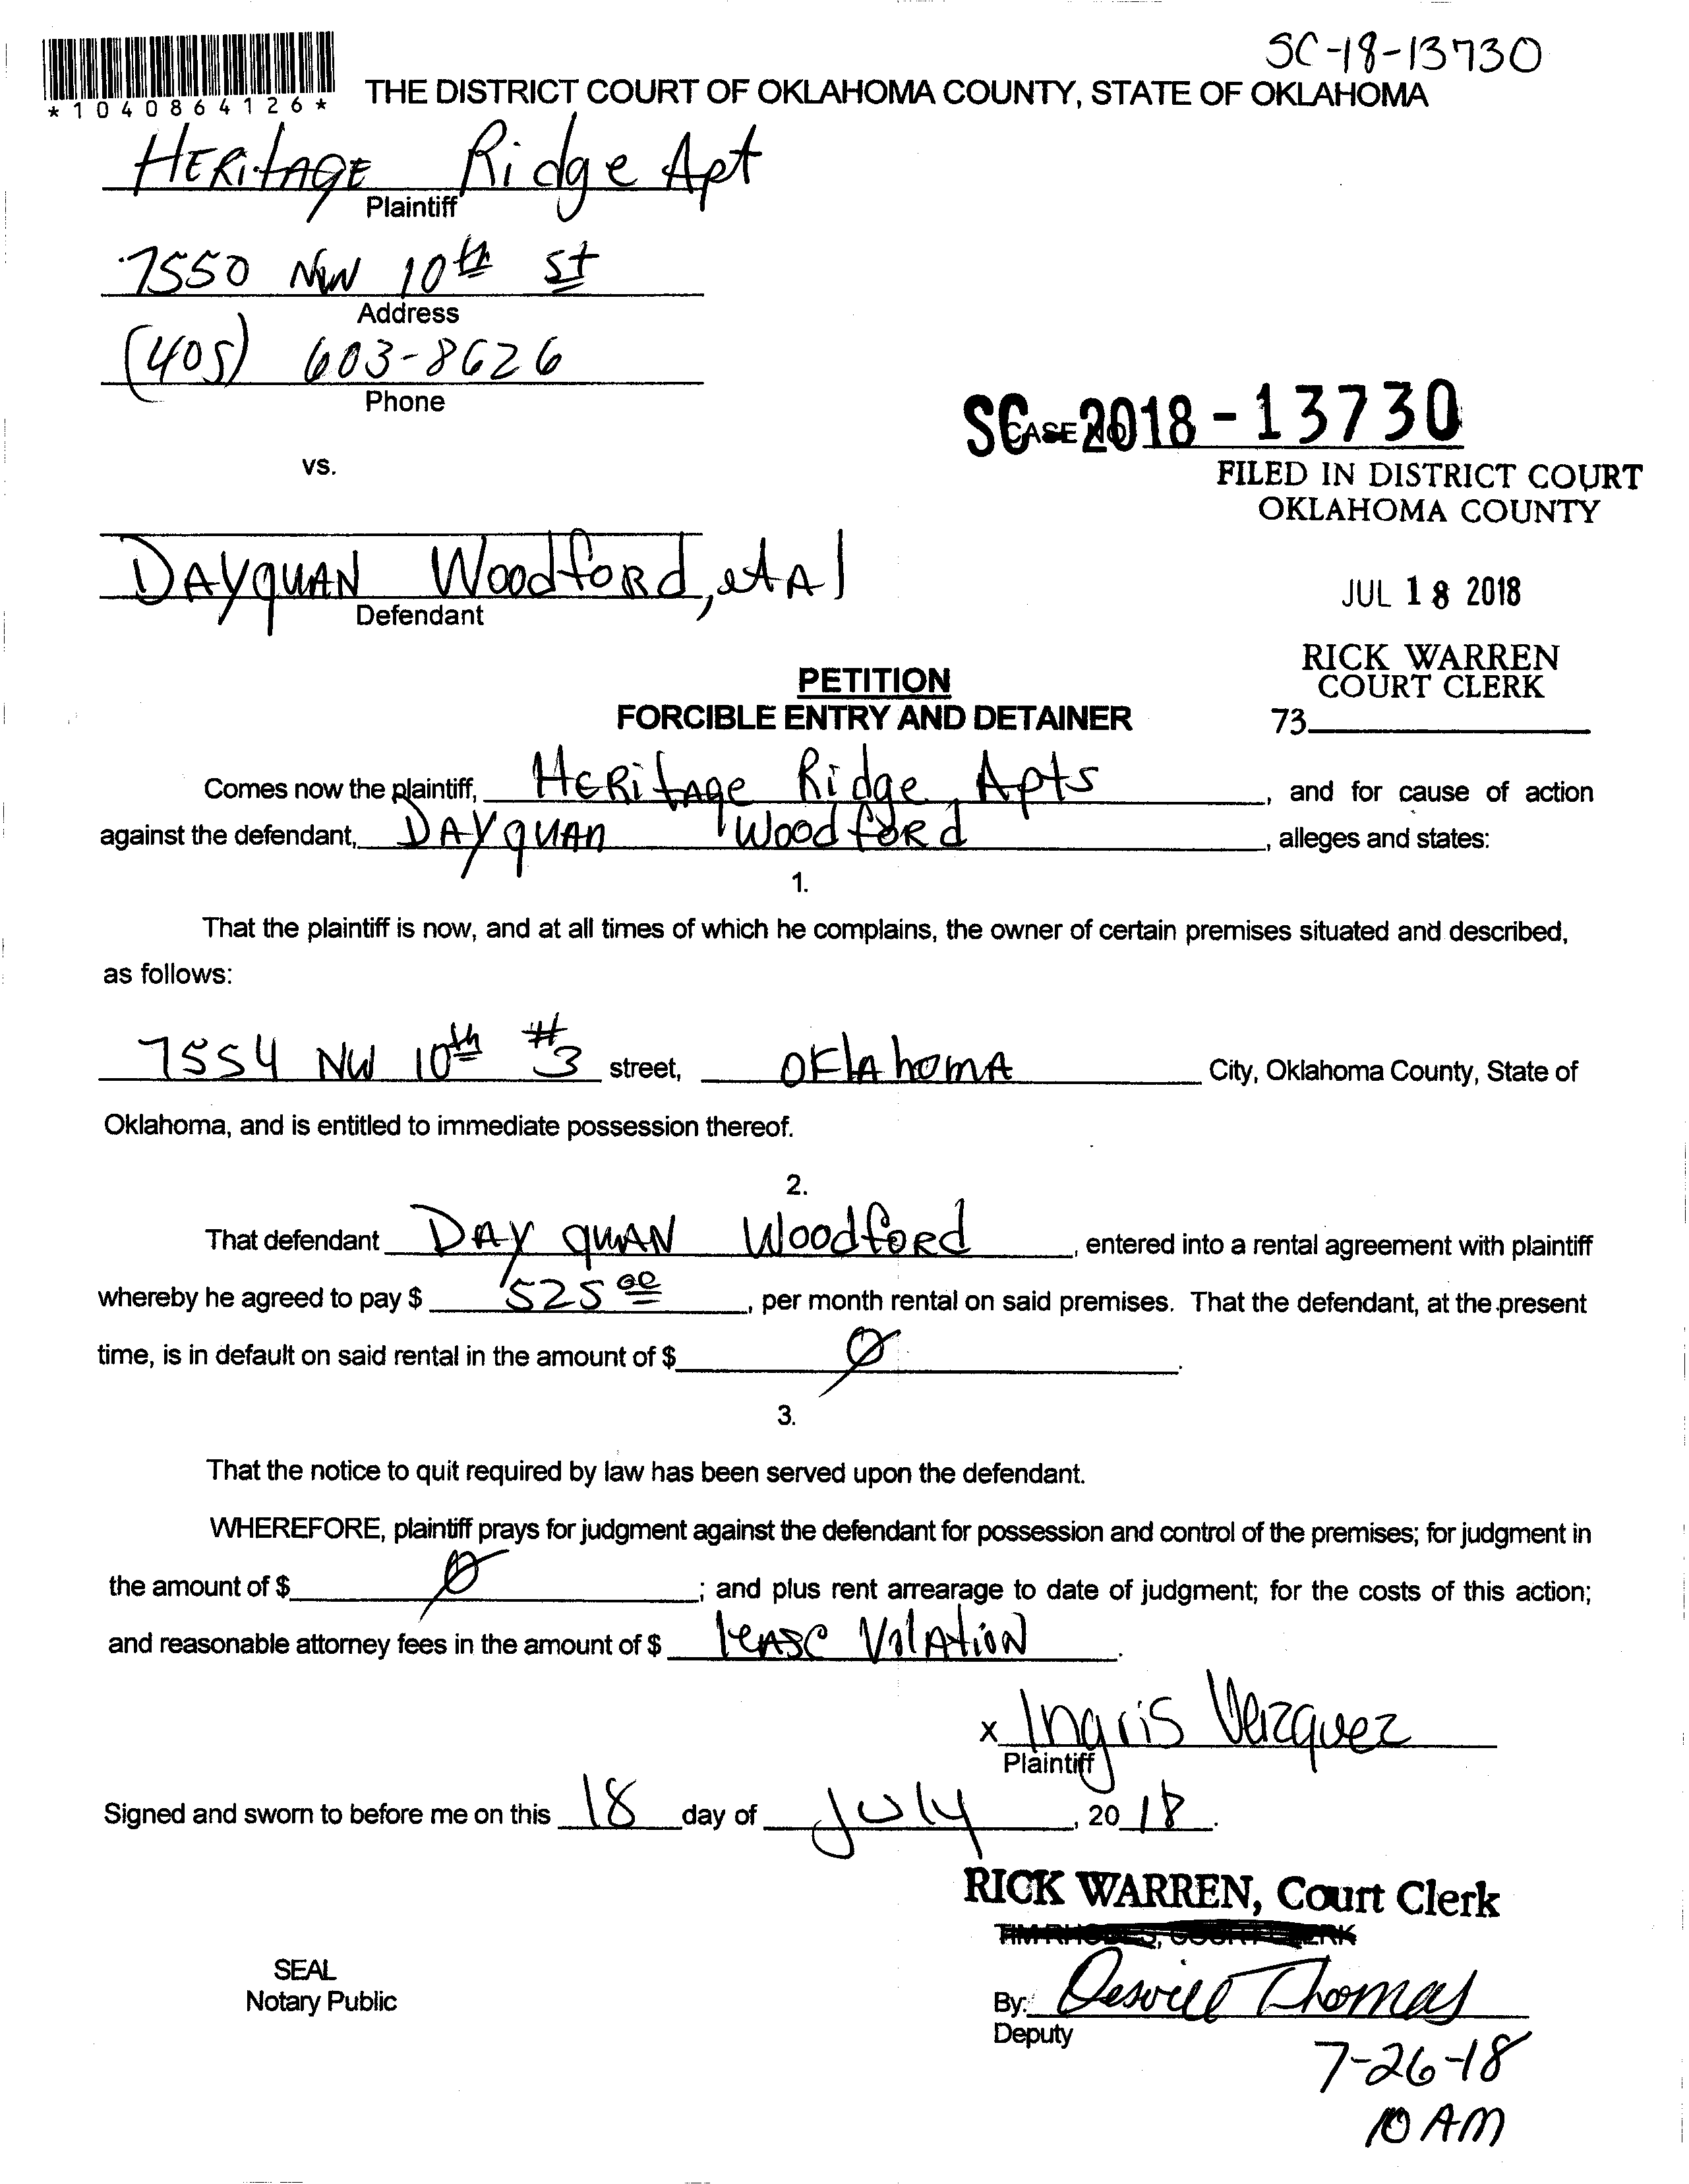 SC-18-13730
*1040864126*
THE DISTRICT COURT OF OKLAHOMA COUNTY, STATE OF OKLAHOMA
HERitAGE Ridge Apt
Plaintiff
7550 NW 10th St
Address
(405) 603-8626
Phone
SC-2018-13730
CASE NO
vs.
FILED IN DISTRICT COURT
OKLAHOMA COUNTY
DAYQUAN Woodford, et Al
Defendant
JUL 18 2018
RICK WARREN
COURT CLERK
73
PETITION
FORCIBLE ENTRY AND DETAINER
Comes now the plaintiff, HERitAge Ridge Apts, and for cause of action
against the defendant, DAYQUAN Woodford, alleges and states:
1.
That the plaintiff is now, and at all times of which he complains, the owner of certain premises situated and described,
as follows:
7554 NW 10th #3 street, OklAhomA City, Oklahoma County, State of
Oklahoma, and is entitled to immediate possession thereof.
2.
That defendant DAYQUAN Woodford, entered into a rental agreement with plaintiff
whereby he agreed to pay $ 525 00, per month rental on said premises. That the defendant, at the present
time, is in default on said rental in the amount of $ Ø.
3.
That the notice to quit required by law has been served upon the defendant.
WHEREFORE, plaintiff prays for judgment against the defendant for possession and control of the premises; for judgment in
the amount of $ Ø; and plus rent arrearage to date of judgment; for the costs of this action;
and reasonable attorney fees in the amount of $ leASe VolAtioN.
x Ingris Vazquez
Plaintiff
Signed and sworn to before me on this 18 day of July, 2018.
RICK WARREN, Court Clerk
TIM RHODES, COURT CLERK
SEAL
Notary Public
By: Thomas
Deputy
7-26-18
10 AM